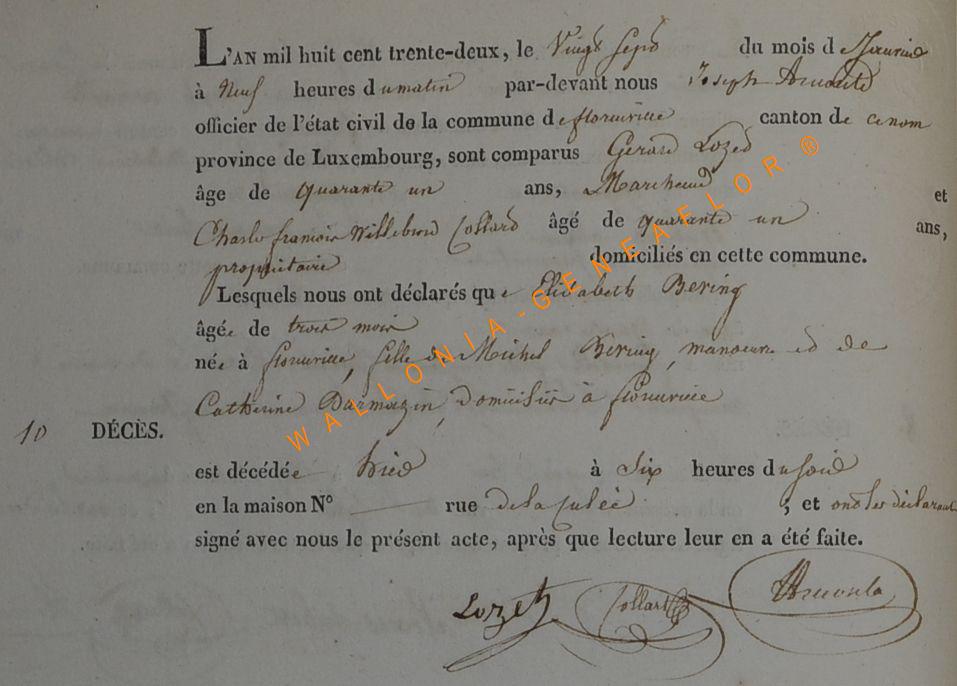 L'AN mil huit cent trente-deux, le Vingt Sept du mois de Janvier
à Neuf heures du matin par-devant nous Joseph Arnould
officier de l'état civil de la commune de florenville canton de ce nom
province de Luxembourg, sont comparus Gerard Lozet
âge de quarante un ans, Marchand et
Charle françois Willebrord Collard âgé de quarante un ans,
propriétaire domiciliés en cette commune.
Lesquels nous ont déclarés que Elisabeth Bering
âgée de trois mois
née à florenville, fille de Michel Bering, manoeuvre et de
Catherine Darmagin, Domiciliés à florenville
10 DÉCÈS.
est décédée hier à Six heures du soir
en la maison N° rue de la Culée ; et ont les déclarants
signé avec nous le présent acte, après que lecture leur en a été faite.
Lozet Collart Arnould
WALLONIA-GENEAFLOR ®